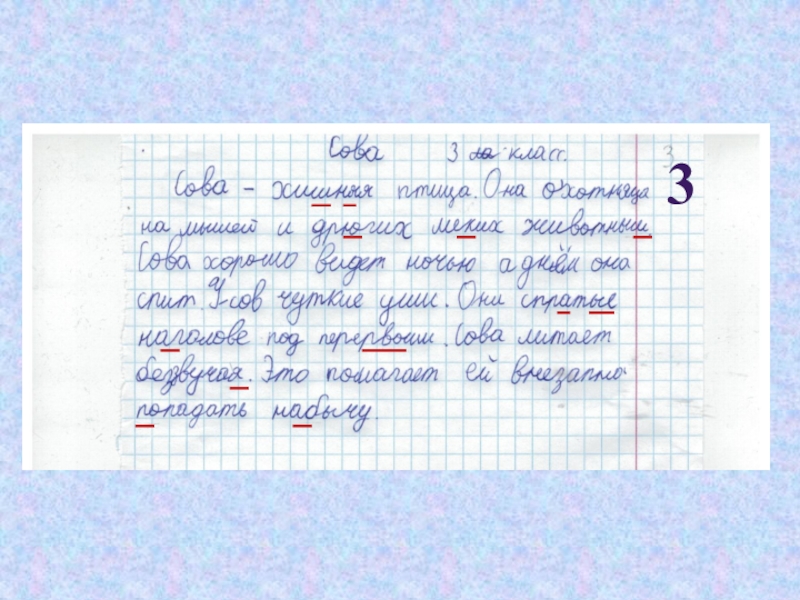 Сова 3 ла класс. 3
Сова - хишныя птица. Она охотняца
на мышей и дрюгих меких животныш.
Сова хорошо видет ночью а днём она
спит. У сов чуткие уши. Они спратые
наголове под перервоши. Сова литает
беззвучая. Это помагает ей внезапна
попадать набычу.
3